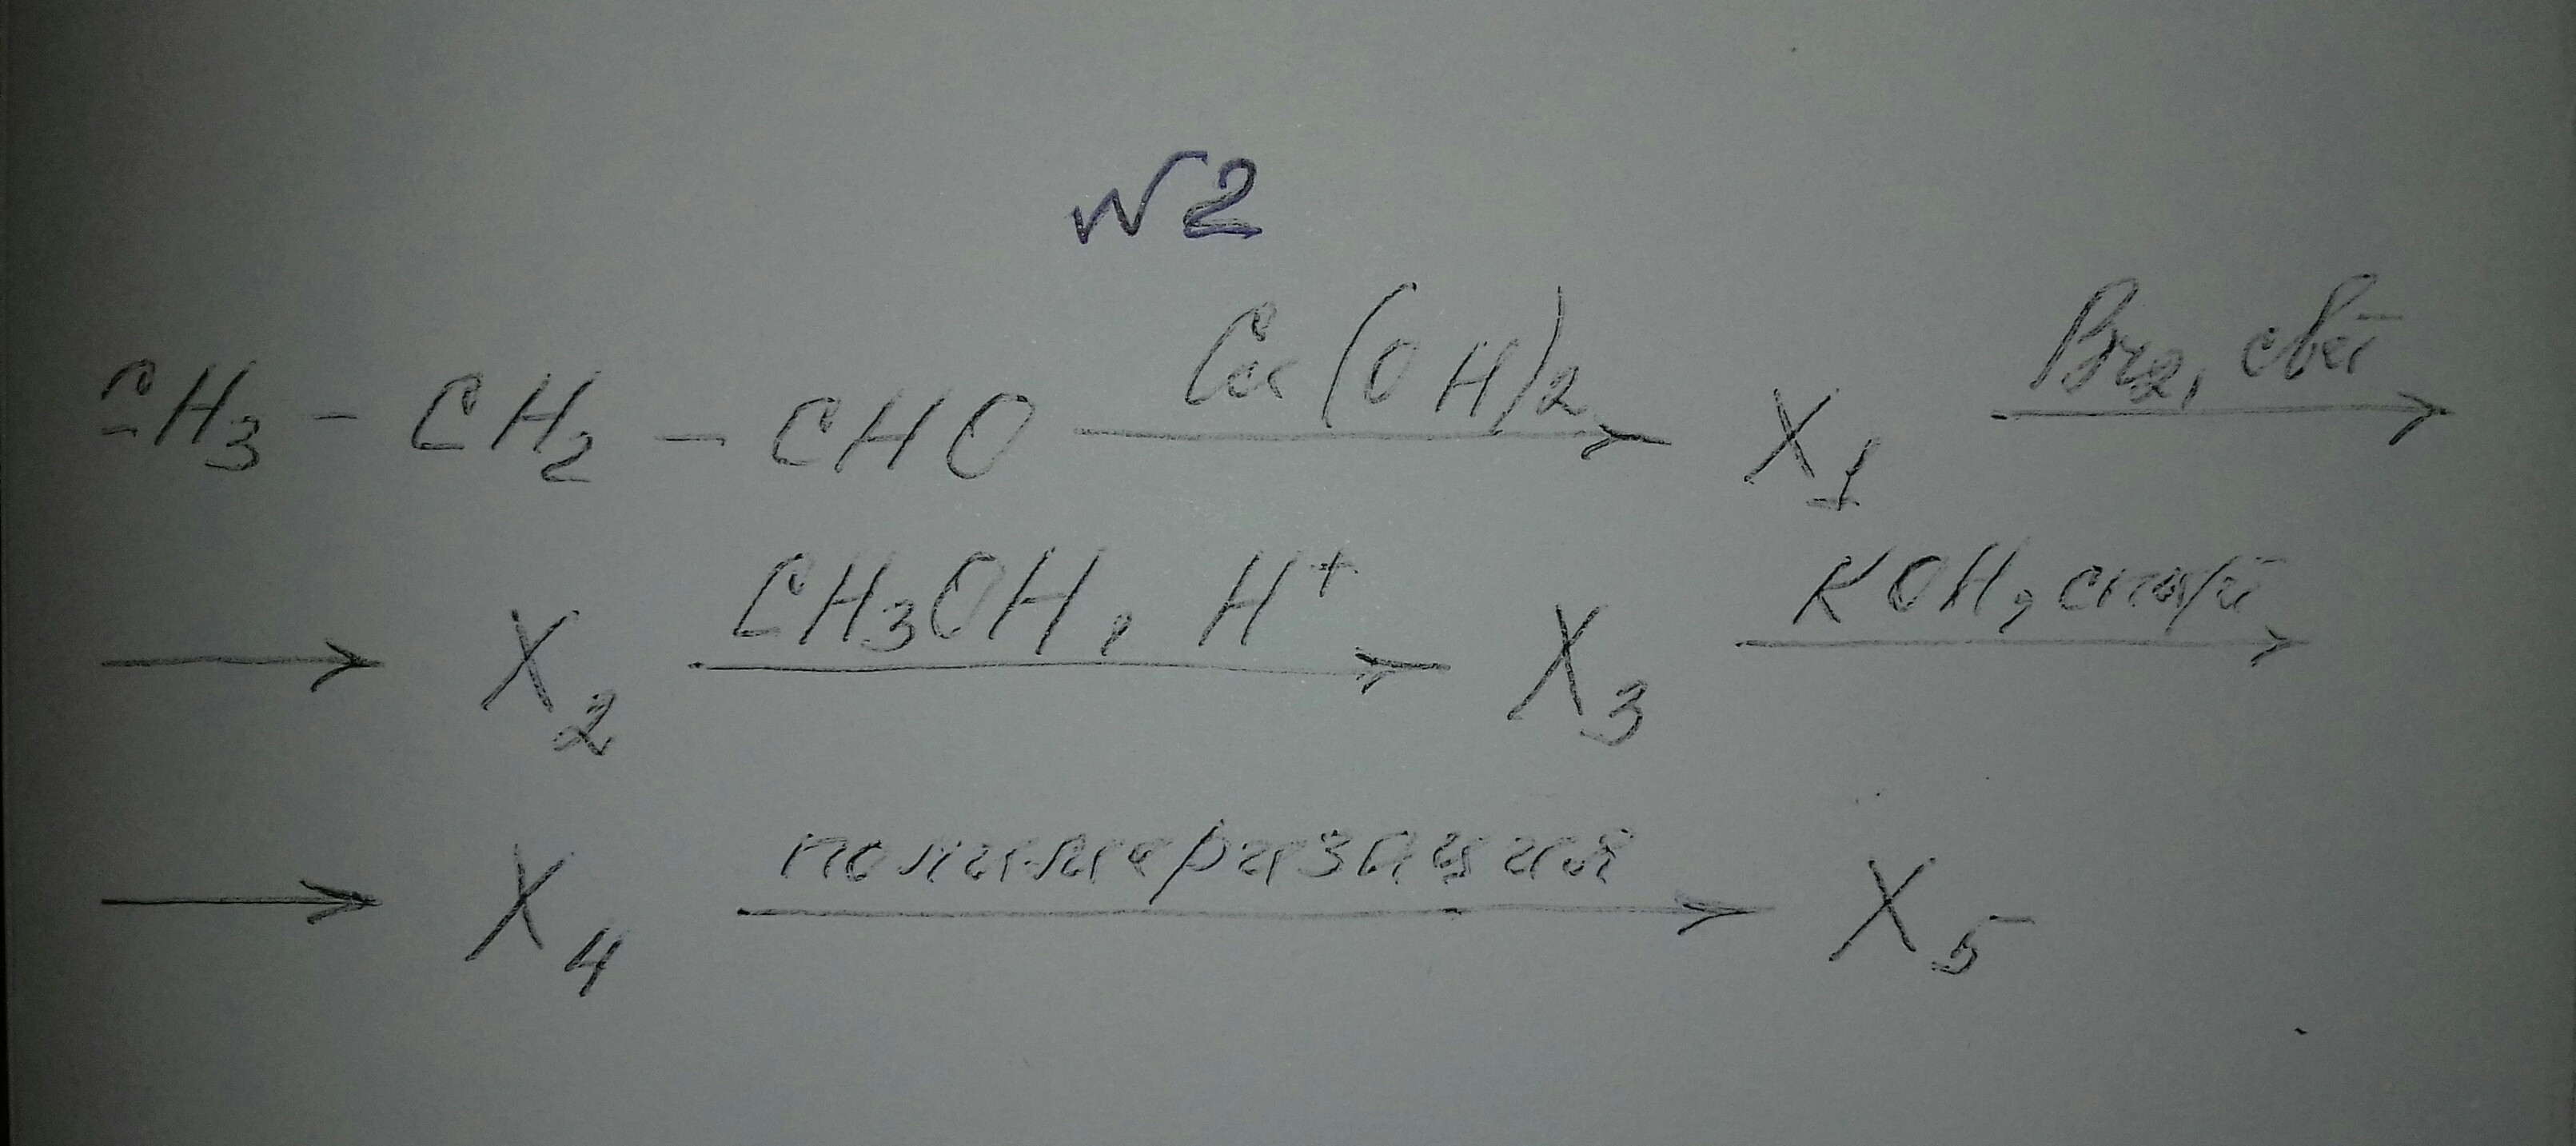 №2
CH3 - CH2 - CHO Cu(OH)2 → X1 Br2, свет →
→ X2 CH3OH, H+ → X3 KOH, спирт →
→ X4 полимеризация → X5